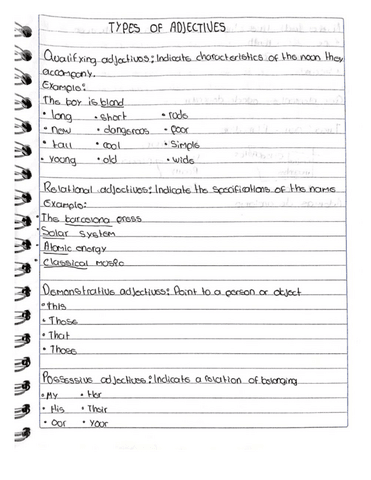 TYPES OF ADJECTIVES
Qualifying adjectives: Indicate characteristics of the noan they
accompany.
Example:
The boy is bland
• long • short • rade
• new • dangeroas • poor
• tall • cool • simple
• young • old • wide
Relational adjectives: Indicate the specifications of the name
Example:
• The barcelona press
• Solar system
• Atomic energy
• Classical
Demonstrative adjectives: Point to a person or object
• This
• Those
• That
• Those
Possessive adjectives: Indicate a relation of belonging
• My • Her
• His • Their
• Oar • Yoar